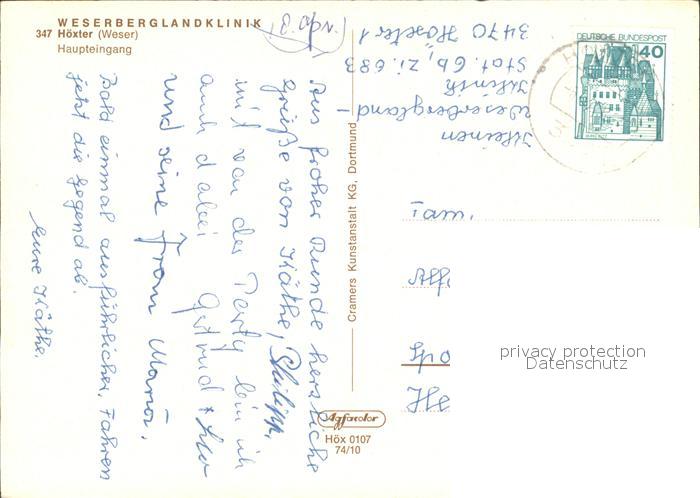 WESERBERGLANDKLINIK
347 Höxter (Weser)
Haupteingang
Aus froher Runde herzliche
Grüße von Käthe, Philipp,
mit von der Party bin ich
auch dabei Gertrud &
und seine Frau Maria.
Bald einmal ausführlicher. Fahren
jetzt die Gegend ab.
Eure Käthe.
Cramers Kunstanstalt KG, Dortmund
Agfacolor
Höx 0107
74/10
Weserbergland-
Klinik
Stat. 6b, Zi. 683
3470 Höxter 1
DEUTSCHE BUNDESPOST
40
Fam.
Alf
Spo
He
privacy protection
Datenschutz